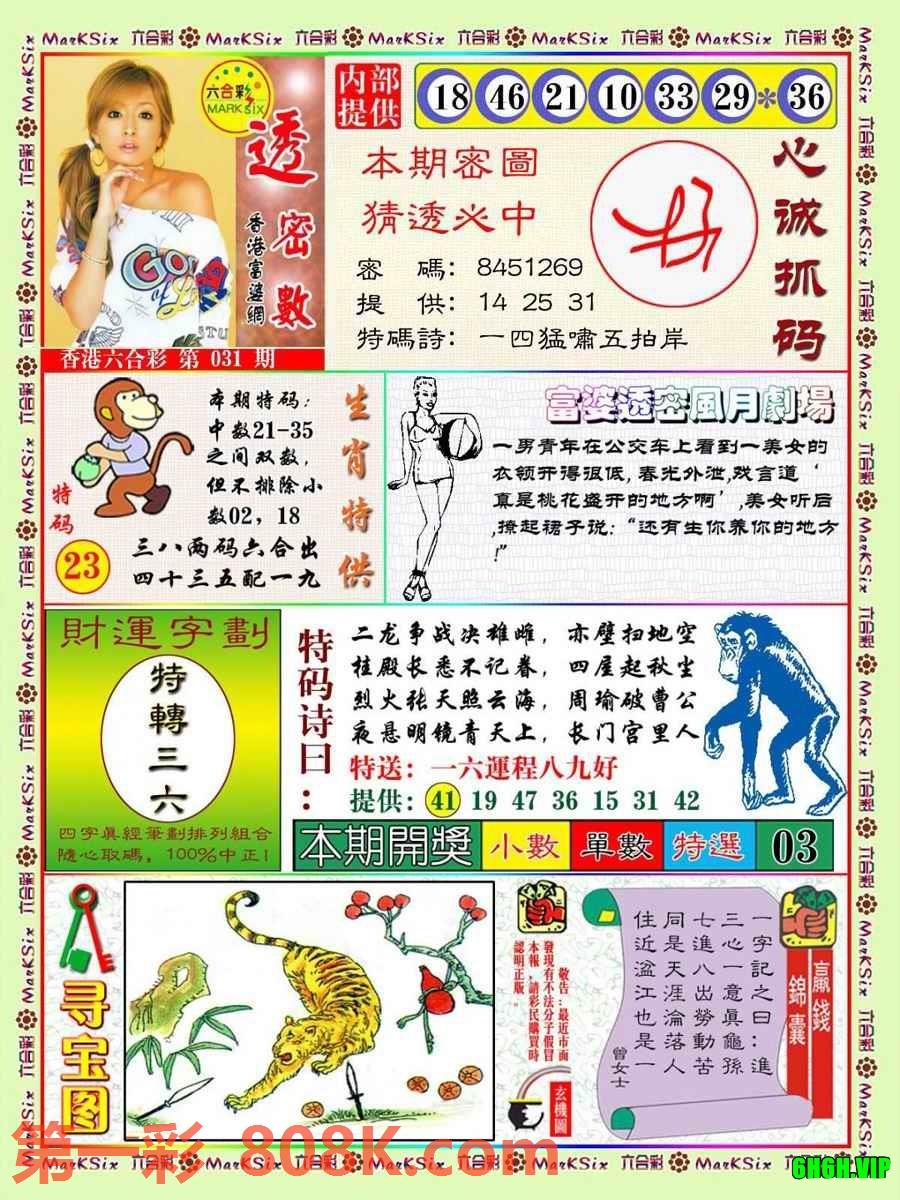 MarKSix 六合彩 MarKSix 六合彩 MarKSix 六合彩 MarKSix 六合彩 MarKSix 六合彩
六合彩
MARKSix
透密數
香港富婆網
香港六合彩 第 031 期
内部
提供
18 46 21 10 33 29 * 36
本期密圖
猜透必中
密 碼：8451269
提 供：14 25 31
特碼詩：一四猛嘯五拍岸
心诚抓码
特码
23
本期特码：
中数21-35
之间双数，
但不排除小
数02，18
三八两码六合出
四十三五配一九
生肖特供
富婆透密風月劇場
一男青年在公交车上看到一美女的
衣领开得很低，春光外泄，戏言道‘
真是桃花盛开的地方啊’，美女听后
，撩起裙子说：“还有生你养你的地方
！”
財運字劃
特轉三六
四字真經筆劃排列組合
隨心取碼，100%中正！
特码诗曰：
二龙争战决雄雌，亦壁扫地空
桂殿长悉不记春，四屋起秋尘
烈火张天照云海，周瑜破曹公
夜悬明镜青天上，长门宫里人
特送：一六運程八九好
提供：41 19 47 36 15 31 42
本期開獎 小數 單數 特選 03
寻宝图
敬告：最近市面
發現有不法分子假冒
本報，請彩民購買時
認明正版。
玄機圖
贏錢
錦囊
一字記之曰：進
三心一意真龜孫
七進八出勞動苦
同是天涯淪落人
住近湓江也是一
曾女士
第一彩 808K.com
6H6H.VIP
MarKSix 六合彩 MarKSix 六合彩 MarKSix 六合彩 MarKSix 六合彩 MarKSix 六合彩